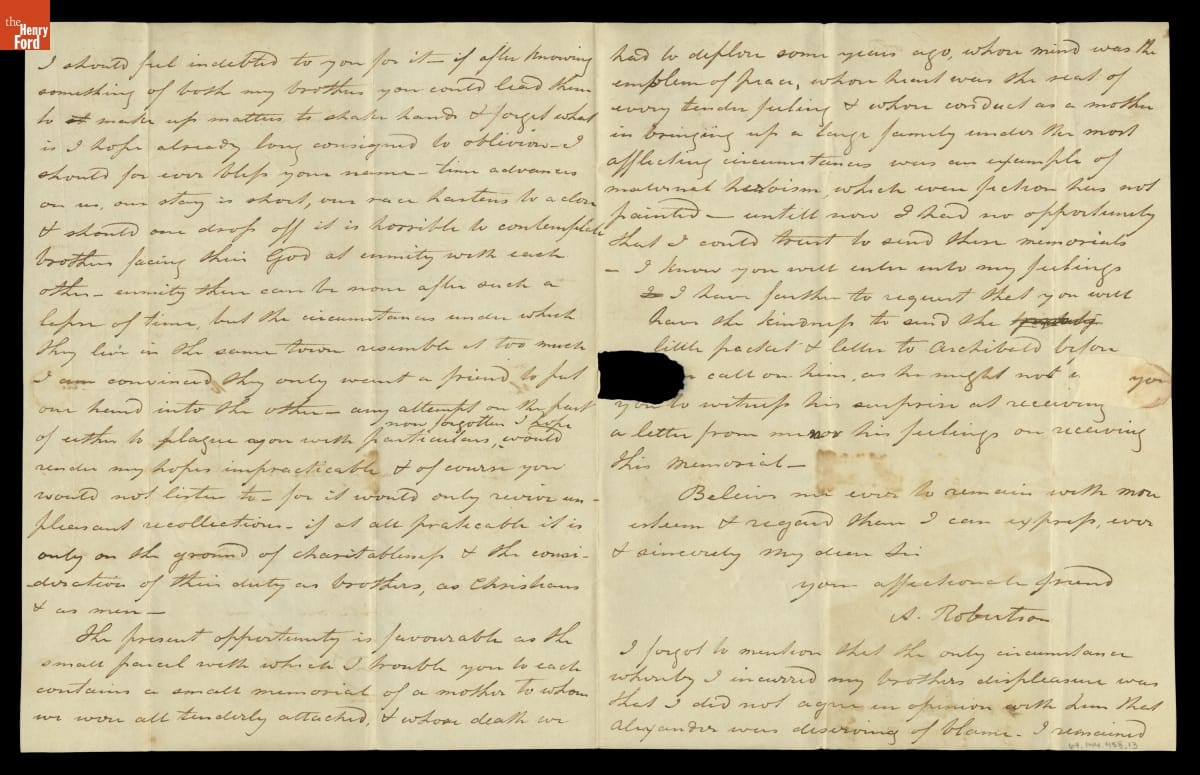 the
Henry
Ford
I should feel indebted to you for it – if after knowing
something of both my brothers you could lead them
to make up matters to shake hands & forget what
is I hope already long consigned to oblivion – I
should for ever bless your name – time advances
on us, our stay is short, our race hastens to a close
& should one drop off it is horrible to contemplate
brothers facing their God at enmity with each
other – enmity there can be none after such a
lapse of time, but the circumstances under which
they live in the same town resemble it too much
I am convinced they only want a friend to put
one hand into the other – any attempt on the part
now forgotten I hope
of either to plague you with particulars, would
render my hopes impracticable & of course you
would not listen to – for it would only revive un-
pleasant recollections – if at all praticable it is
only on the ground of charitableness & the consi-
deration of their duty as brothers, as Christians
& as men –
The present opportunity is favourable as the
small parcel with which I trouble you to each
contains a small memorial of a mother to whom
we were all tenderly attached, & whose death we
had to deplore some years ago, whose mind was the
emblem of peace, whose heart was the seat of
every tender feeling & whose conduct as a mother
in bringing up a large family under the most
afflicting circumstances was an example of
maternal heroism, which even fiction has not
painted – untill now I had no opportunity
that I could trust to send these memorials
– I know you will enter into my feelings
I have further to request that you will
have the kindness to send the
little packet & letter to Archibald before
call on him, as he might not
you
you to witness his surprise at receiving
a letter from me nor his feelings on receiving
this memorial –
Beleive me ever to remain with more
esteem & regard than I can express, ever
& sincerely my dear Sir
your affectionate friend
A. Robertson
I forgot to mention that the only circumstance
whereby I incurred my brothers displeasure was
that I did not agree in opinion with him that
Alexander was deserving of blame – I remained
64.144.458.13